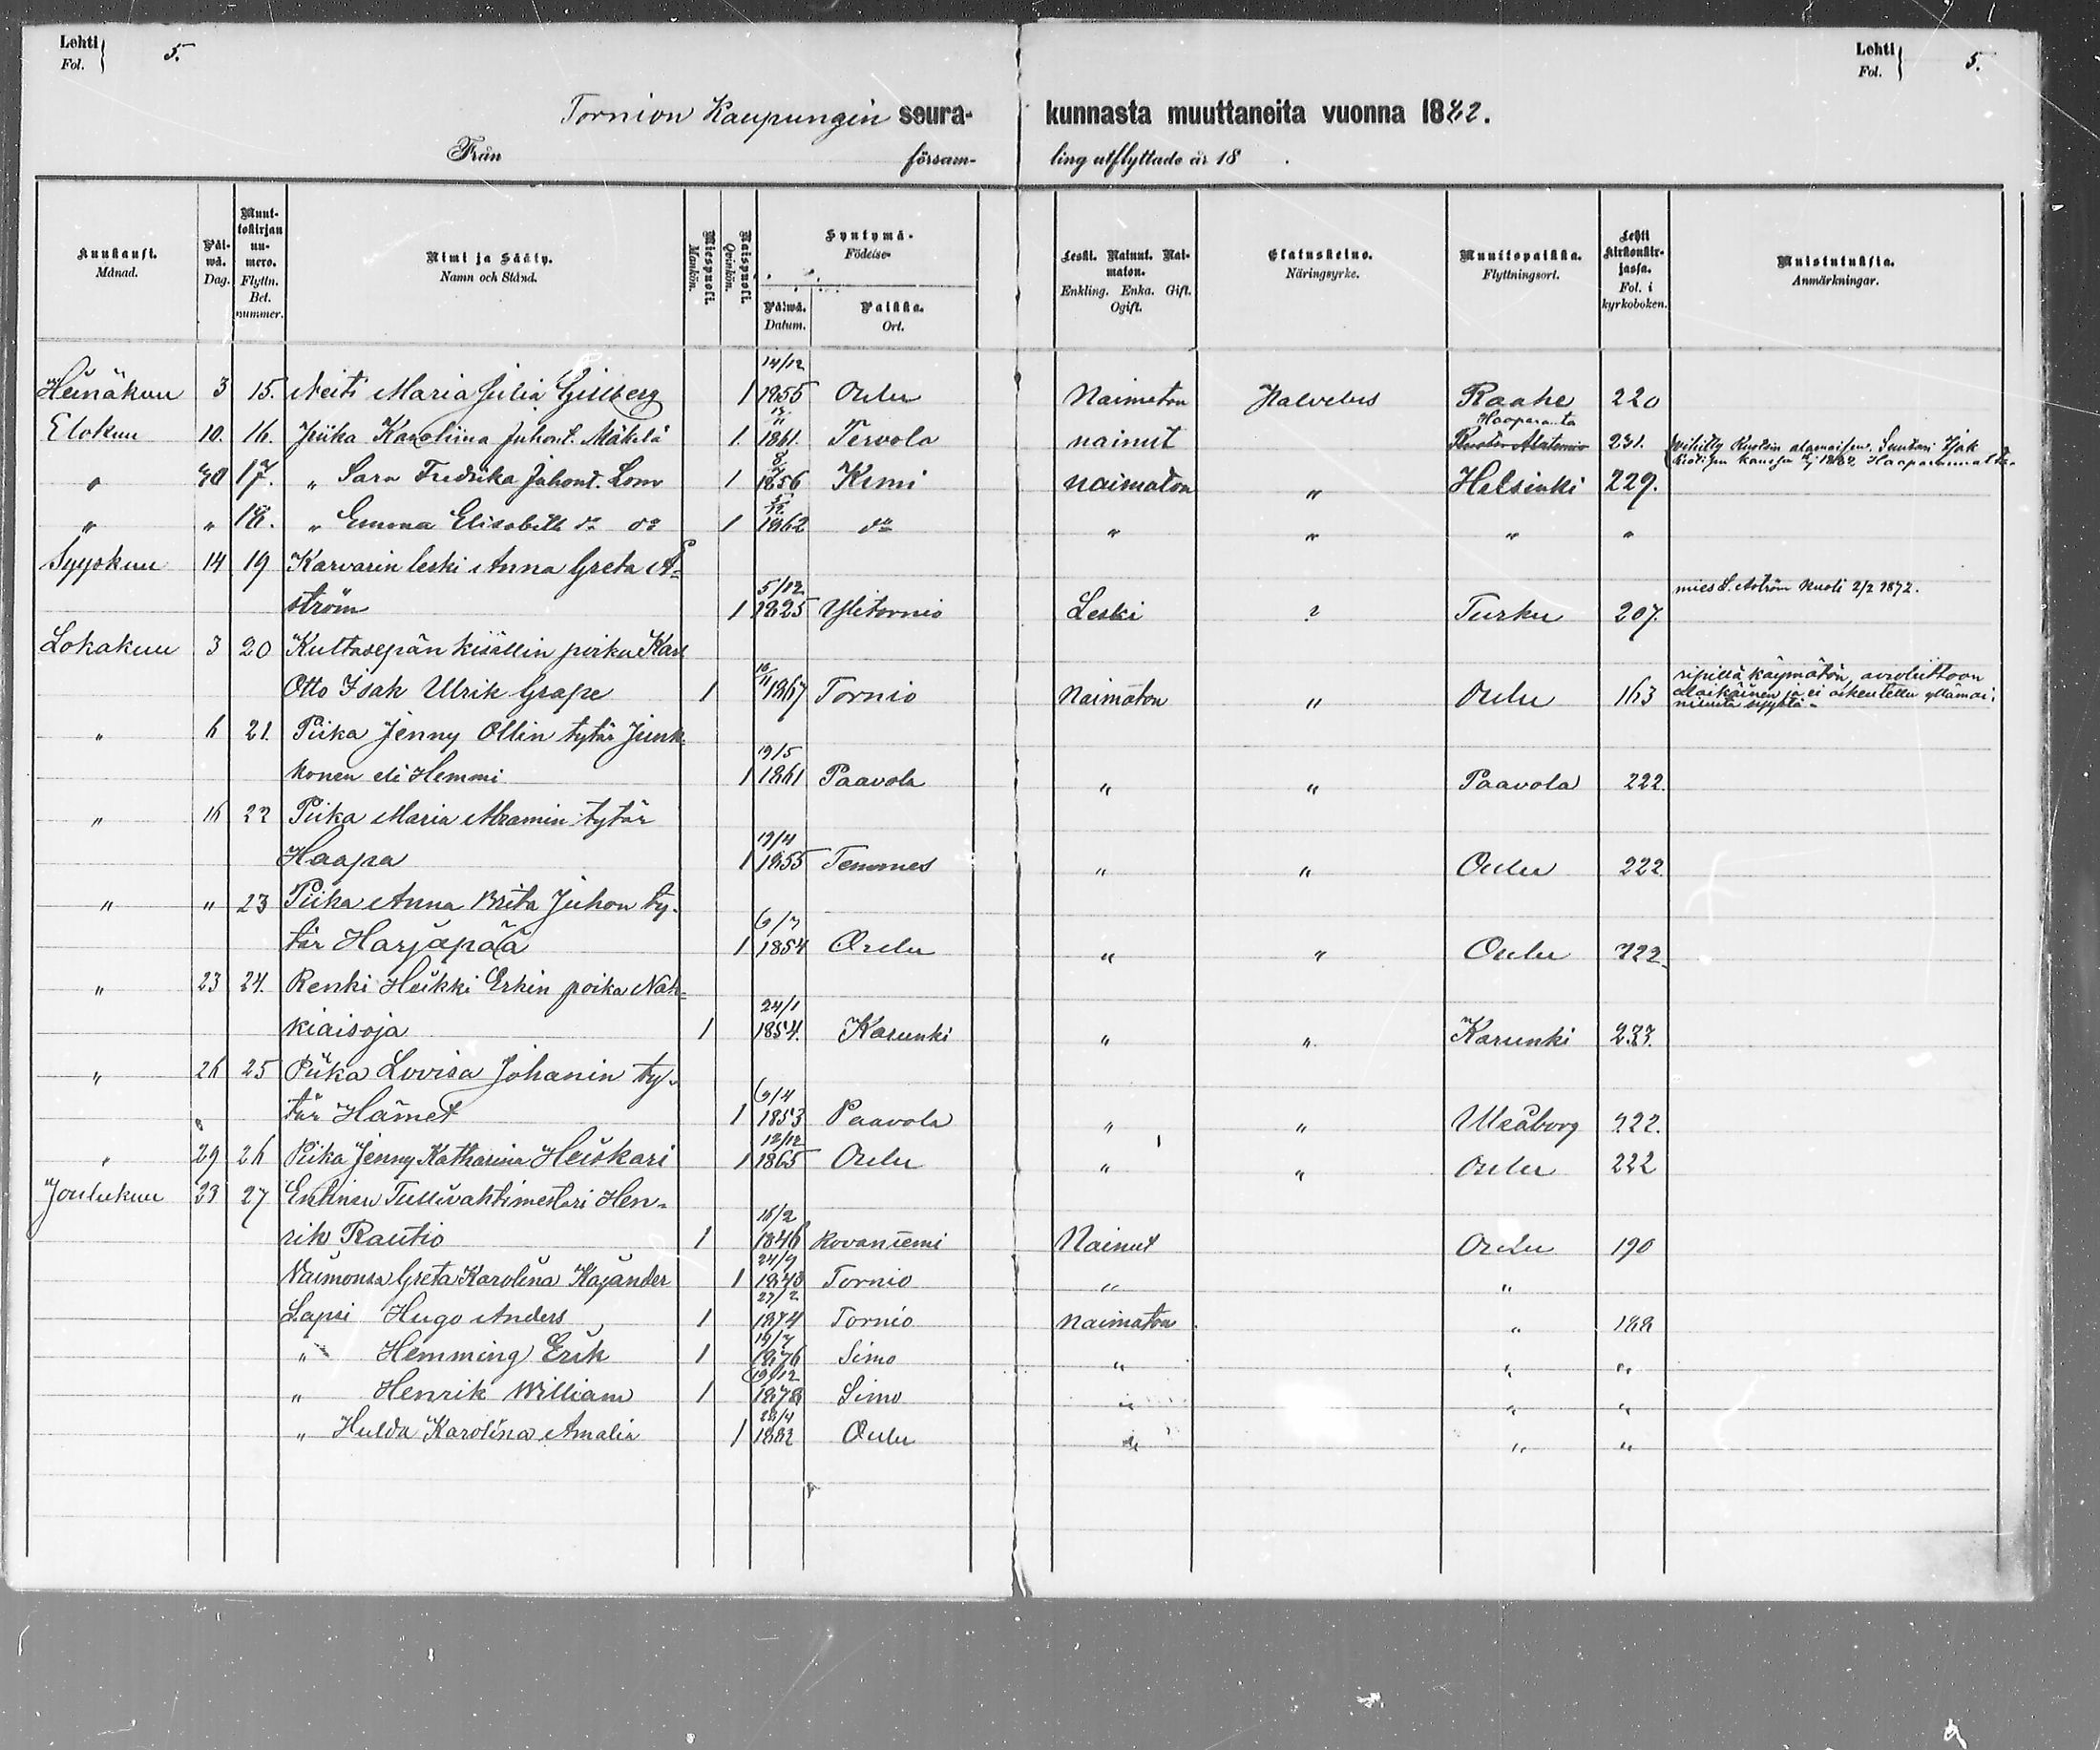 Lehti Fol. 5.
Lehti Fol. 5.
Tornion Kaupungin seurakunnasta muuttaneita vuonna 1882.
Från församling utflyttade år 18 .
Kuukausi. Månad. | Päiwä. Dag. | Muuttokirjan numero. Flyttn. Bet. nummer. | Nimi ja Sääty. Namn och Stånd. | Miespuoli. Mankön. | Naispuoli. Qvinkön. | Syntymä- Födelse- Päiwä. Datum. | Paikka. Ort. | Leski. Nainut. Naimaton. Enkling. Enka. Gift. Ogift. | Elatuskeino. Näringsyrke. | Muuttopaikka. Flyttningsort. | Lehti kirkonkirjassa. Fol. i kyrkoboken. | Muistutuksia. Anmärkningar.
Heinäkuu 3 15. Neiti Maria Julia Gillberg 1 14/12 1855 Oulu Naimaton Palvelus Raahe 220
Elokuu 10. 16. Piika Karoliina Juhont. Mäkelä 1. 1861. Tervola nainut Haaparanta 231. vihitty Ruotsin alamaisen
" 30 17. " Sara Fredrika Juhont. Lom 1 1856 Kemi naimaton " Helsinki 229.
" " 18. " Emma Elisabeth do do 1 1862 do " " " "
Syyskuu 14 19 Karvarin leski Anna Greta A=
ström 1 5/12 1825 Ylitornio Leski ? Turku 207. mies Åström kuoli 2/2 1872.
Lokakuu 3 20 Kultasepän kisällin poika Karl
Otto Isak Ulrik Grape 1 1867 Tornio Naimaton " Oulu 163 ripillä käymätön, avioliittoon
" 6 21. Piika Jenny Ollin tytär Junk=
konen eli Hemmi 1 19/5 1861 Paavola " " Paavola 222.
" 16 22 Piika Maria Abramin tytär
Haapa 1 19/4 1855 Temmes " " Oulu 222
" " 23 Piika Anna Brita Juhon ty-
tär Harjapää 1 6/7 1854 Oulu " " Oulu 222.
" 23 24. Renki Heikki Erkin poika Nah=
kiaisoja 1 24/1 1854. Karunki " " Karunki 233.
" 26 25 Piika Lovisa Johanin ty-
tär Hämet 1 6/4 1853 Paavola " " Uleåborg 222.
" 29 26 Piika Jenny Katharina Heiskari 1 12/12 1865 Oulu " " Oulu 222
Joulukuu 23 27 Entinen Tullivahtimestari Hen-
rik Rautio 1 18/2 1846 Rovaniemi Nainut Oulu 190
Vaimonsa Greta Karolina Kajander 1 24/9 1843 Tornio " "
Lapsi Hugo Anders 1 27/2 1874 Tornio Naimaton " 188
" Hemming Erik 1 19/7 1876 Simo " " "
" Henrik William 1 19/12 1878 Simo " " "
" Hulda Karolina Amalia 1 28/4 1882 Oulu " " "